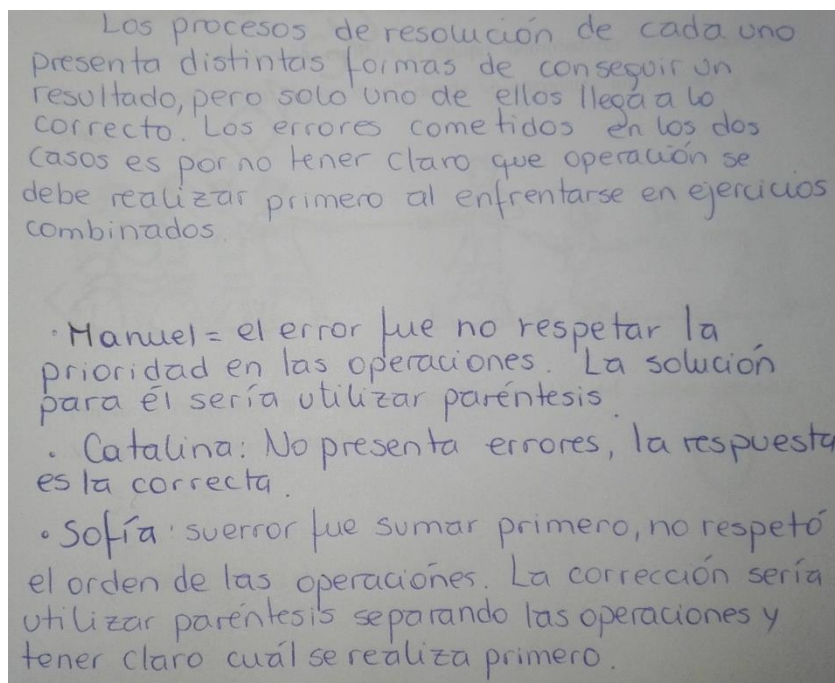 Los procesos de resolución de cada uno
presenta distintas formas de conseguir un
resultado, pero solo uno de ellos llega a lo
correcto. Los errores cometidos en los dos
casos es por no tener claro que operación se
debe realizar primero al enfrentarse en ejercicios
combinados.
· Manuel = el error fue no respetar la
prioridad en las operaciones. La solución
para él sería utilizar paréntesis.
· Catalina: No presenta errores, la respuesta
es la correcta.
· Sofía: su error fue sumar primero, no respetó
el orden de las operaciones. La corrección sería
utilizar paréntesis separando las operaciones y
tener claro cuál se realiza primero.